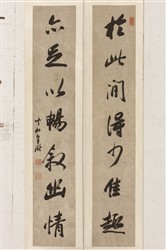 於此閒得少佳趣
亦足以暢敘幽情